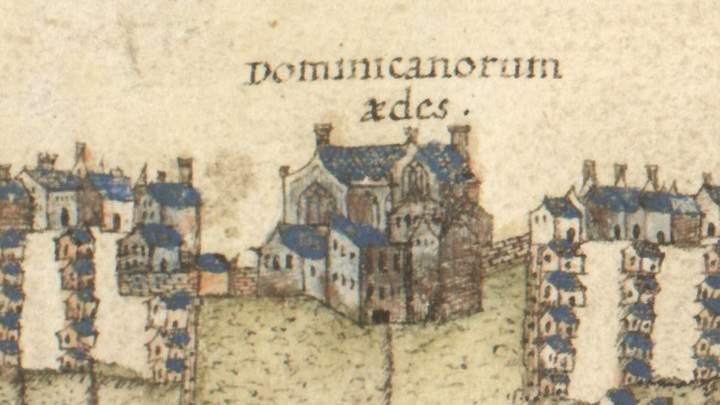 Dominicanorum
ædes.